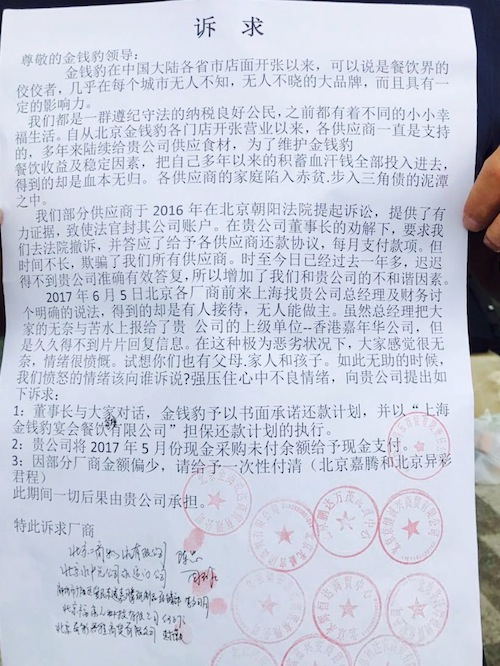 诉 求
尊敬的金钱豹领导:
金钱豹在中国大陆各省市店面开张以来，可以说是餐饮界的
佼佼者，几乎在每个城市无人不知，无人不晓的大品牌，而且具有一
定的影响力。
我们都是一群遵纪守法的纳税良好公民，之前都有着不同的小小幸
福生活。自从北京金钱豹各门店开张营业以来，各供应商一直是支持
的，多年来陆续给贵公司供应食材，为了维护金钱豹
餐饮收益及稳定因素，把自己多年以来的积蓄血汗钱全部投入进去，
得到的却是血本无归。各供应商的家庭陷入赤贫.步入三角债的泥潭
之中。
我们部分供应商于 2016 年在北京朝阳法院提起诉讼，提供了有
力证据，致使法官封其公司账户。在贵公司董事长的劝解下，要求我
们去法院撤诉，并答应了给予各供应商还款协议，每月支付款项。但
时间不长，欺骗了我们所有供应商。时至今日已经过去一年多，迟迟
得不到贵公司准确有效答复，所以增加了我们和贵公司的不和谐因素。
2017 年 6 月 5 日北京各厂商前来上海找贵公司总经理及财务讨
个明确的说法，得到的却是有人接待，无人能做主。虽然总经理把大
家的无奈与苦水上报给了贵 公司的上级单位--香港嘉年华公司，但
是久久得不到片片回复信息。在这种极为恶劣状况下，大家感觉很无
奈，情绪很愤慨。试想你们也有父母.家人和孩子。如此无助的时候，
我们愤怒的情绪该向谁诉说?强压住心中不良情绪，向贵公司提出如
下诉求:
1: 董事长与大家对话，金钱豹予以书面承诺还款计划，并以“上海
金钱豹宴会餐饮有限公司”担保还款计划的执行。
2: 贵公司将 2017 年 5 月份现金采购未付余额给予现金支付。
3: 因部分厂商金额偏少，请给予一次性付清（北京嘉腾和北京异彩
君程）
此期间一切后果由贵公司承担。
特此诉求厂商